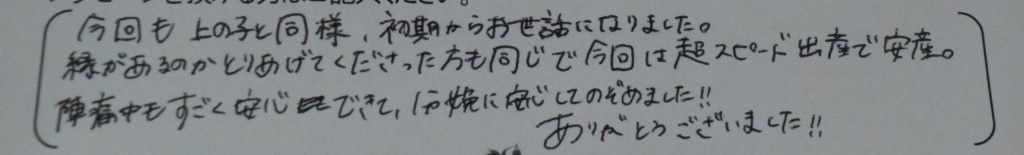 今回も上の子と同様、初期からお世話になりました。
縁があるのかとりあげてくださった方も同じで今回は超スピード出産で安産。
陣痛中もすごく安心できて、分娩に安心してのぞめました!!
ありがとうございました!!